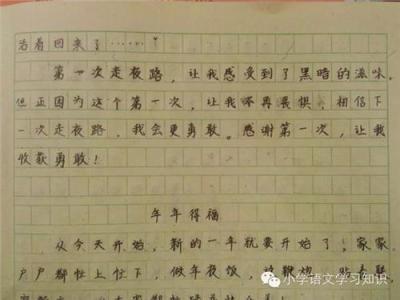 活着回来了……”
第一次走夜路，让我感受到了黑暗的滋味。
但正因为这个第一次，让我不再畏惧，相信下
一次走夜路，我会更勇敢。感谢第一次，让我
收获勇敢！
年年得福
从今天开始，新的一年就要开始了！家家
户户都忙上忙下，做年夜饭，放鞭炮，贴春联
小学语文学习知识